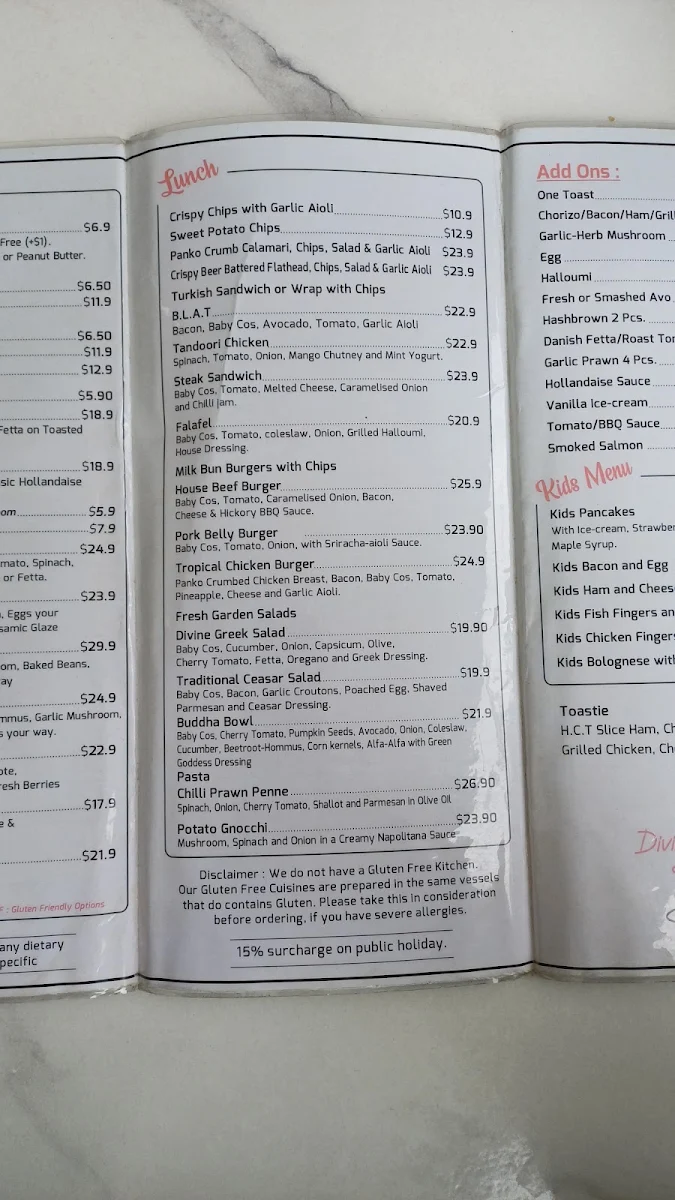 $6.9
Free (+$1).
or Peanut Butter.
$6.50
$11.9
$6.50
$11.9
$12.9
$5.90
$18.9
Fetta on Toasted
$18.9
sic Hollandaise
om $5.9
$7.9
$24.9
mato, Spinach,
or Fetta.
$23.9
, Eggs your
samic Glaze
$29.9
om, Baked Beans,
ay
$24.9
mmus, Garlic Mushroom,
s your way.
$22.9
ote,
resh Berries
$17.9
e &
$21.9
F : Gluten Friendly Options
any dietary
pecific
Lunch
Crispy Chips with Garlic Aioli $10.9
Sweet Potato Chips $12.9
Panko Crumb Calamari, Chips, Salad & Garlic Aioli $23.9
Crispy Beer Battered Flathead, Chips, Salad & Garlic Aioli $23.9
Turkish Sandwich or Wrap with Chips
B.L.A.T $22.9
Bacon, Baby Cos, Avocado, Tomato, Garlic Aioli
Tandoori Chicken $22.9
Spinach, Tomato, Onion, Mango Chutney and Mint Yogurt.
Steak Sandwich $23.9
Baby Cos, Tomato, Melted Cheese, Caramelised Onion
and Chilli Jam.
Falafel $20.9
Baby Cos, Tomato, coleslaw, Onion, Grilled Halloumi,
House Dressing.
Milk Bun Burgers with Chips
House Beef Burger $25.9
Baby Cos, Tomato, Caramelised Onion, Bacon,
Cheese & Hickory BBQ Sauce.
Pork Belly Burger $23.90
Baby Cos, Tomato, Onion, with Sriracha-aioli Sauce.
Tropical Chicken Burger $24.9
Panko Crumbed Chicken Breast, Bacon, Baby Cos, Tomato,
Pineapple, Cheese and Garlic Aioli.
Fresh Garden Salads
Divine Greek Salad $19.90
Baby Cos, Cucumber, Onion, Capsicum, Olive,
Cherry Tomato, Fetta, Oregano and Greek Dressing.
Traditional Ceasar Salad $19.9
Baby Cos, Bacon, Garlic Croutons, Poached Egg, Shaved
Parmesan and Ceasar Dressing.
Buddha Bowl $21.9
Baby Cos, Cherry Tomato, Pumpkin Seeds, Avocado, Onion, Coleslaw,
Cucumber, Beetroot-Hommus, Corn kernels, Alfa-Alfa with Green
Goddess Dressing
Pasta
Chilli Prawn Penne $26.90
Spinach, Onion, Cherry Tomato, Shallot and Parmesan in Olive Oil
Potato Gnocchi $23.90
Mushroom, Spinach and Onion in a Creamy Napolitana Sauce
Disclaimer : We do not have a Gluten Free Kitchen.
Our Gluten Free Cuisines are prepared in the same vessels
that do contains Gluten. Please take this in consideration
before ordering, if you have severe allergies.
15% surcharge on public holiday.
Add Ons :
One Toast
Chorizo/Bacon/Ham/Gril
Garlic-Herb Mushroom
Egg
Halloumi
Fresh or Smashed Avo
Hashbrown 2 Pcs.
Danish Fetta/Roast Tom
Garlic Prawn 4 Pcs.
Hollandaise Sauce
Vanilla Ice-cream
Tomato/BBQ Sauce
Smoked Salmon
Kids Menu
Kids Pancakes
With Ice-cream, Strawber
Maple Syrup.
Kids Bacon and Egg
Kids Ham and Chees
Kids Fish Fingers an
Kids Chicken Finger
Kids Bolognese with
Toastie
H.C.T Slice Ham, Ch
Grilled Chicken, Ch
Divi